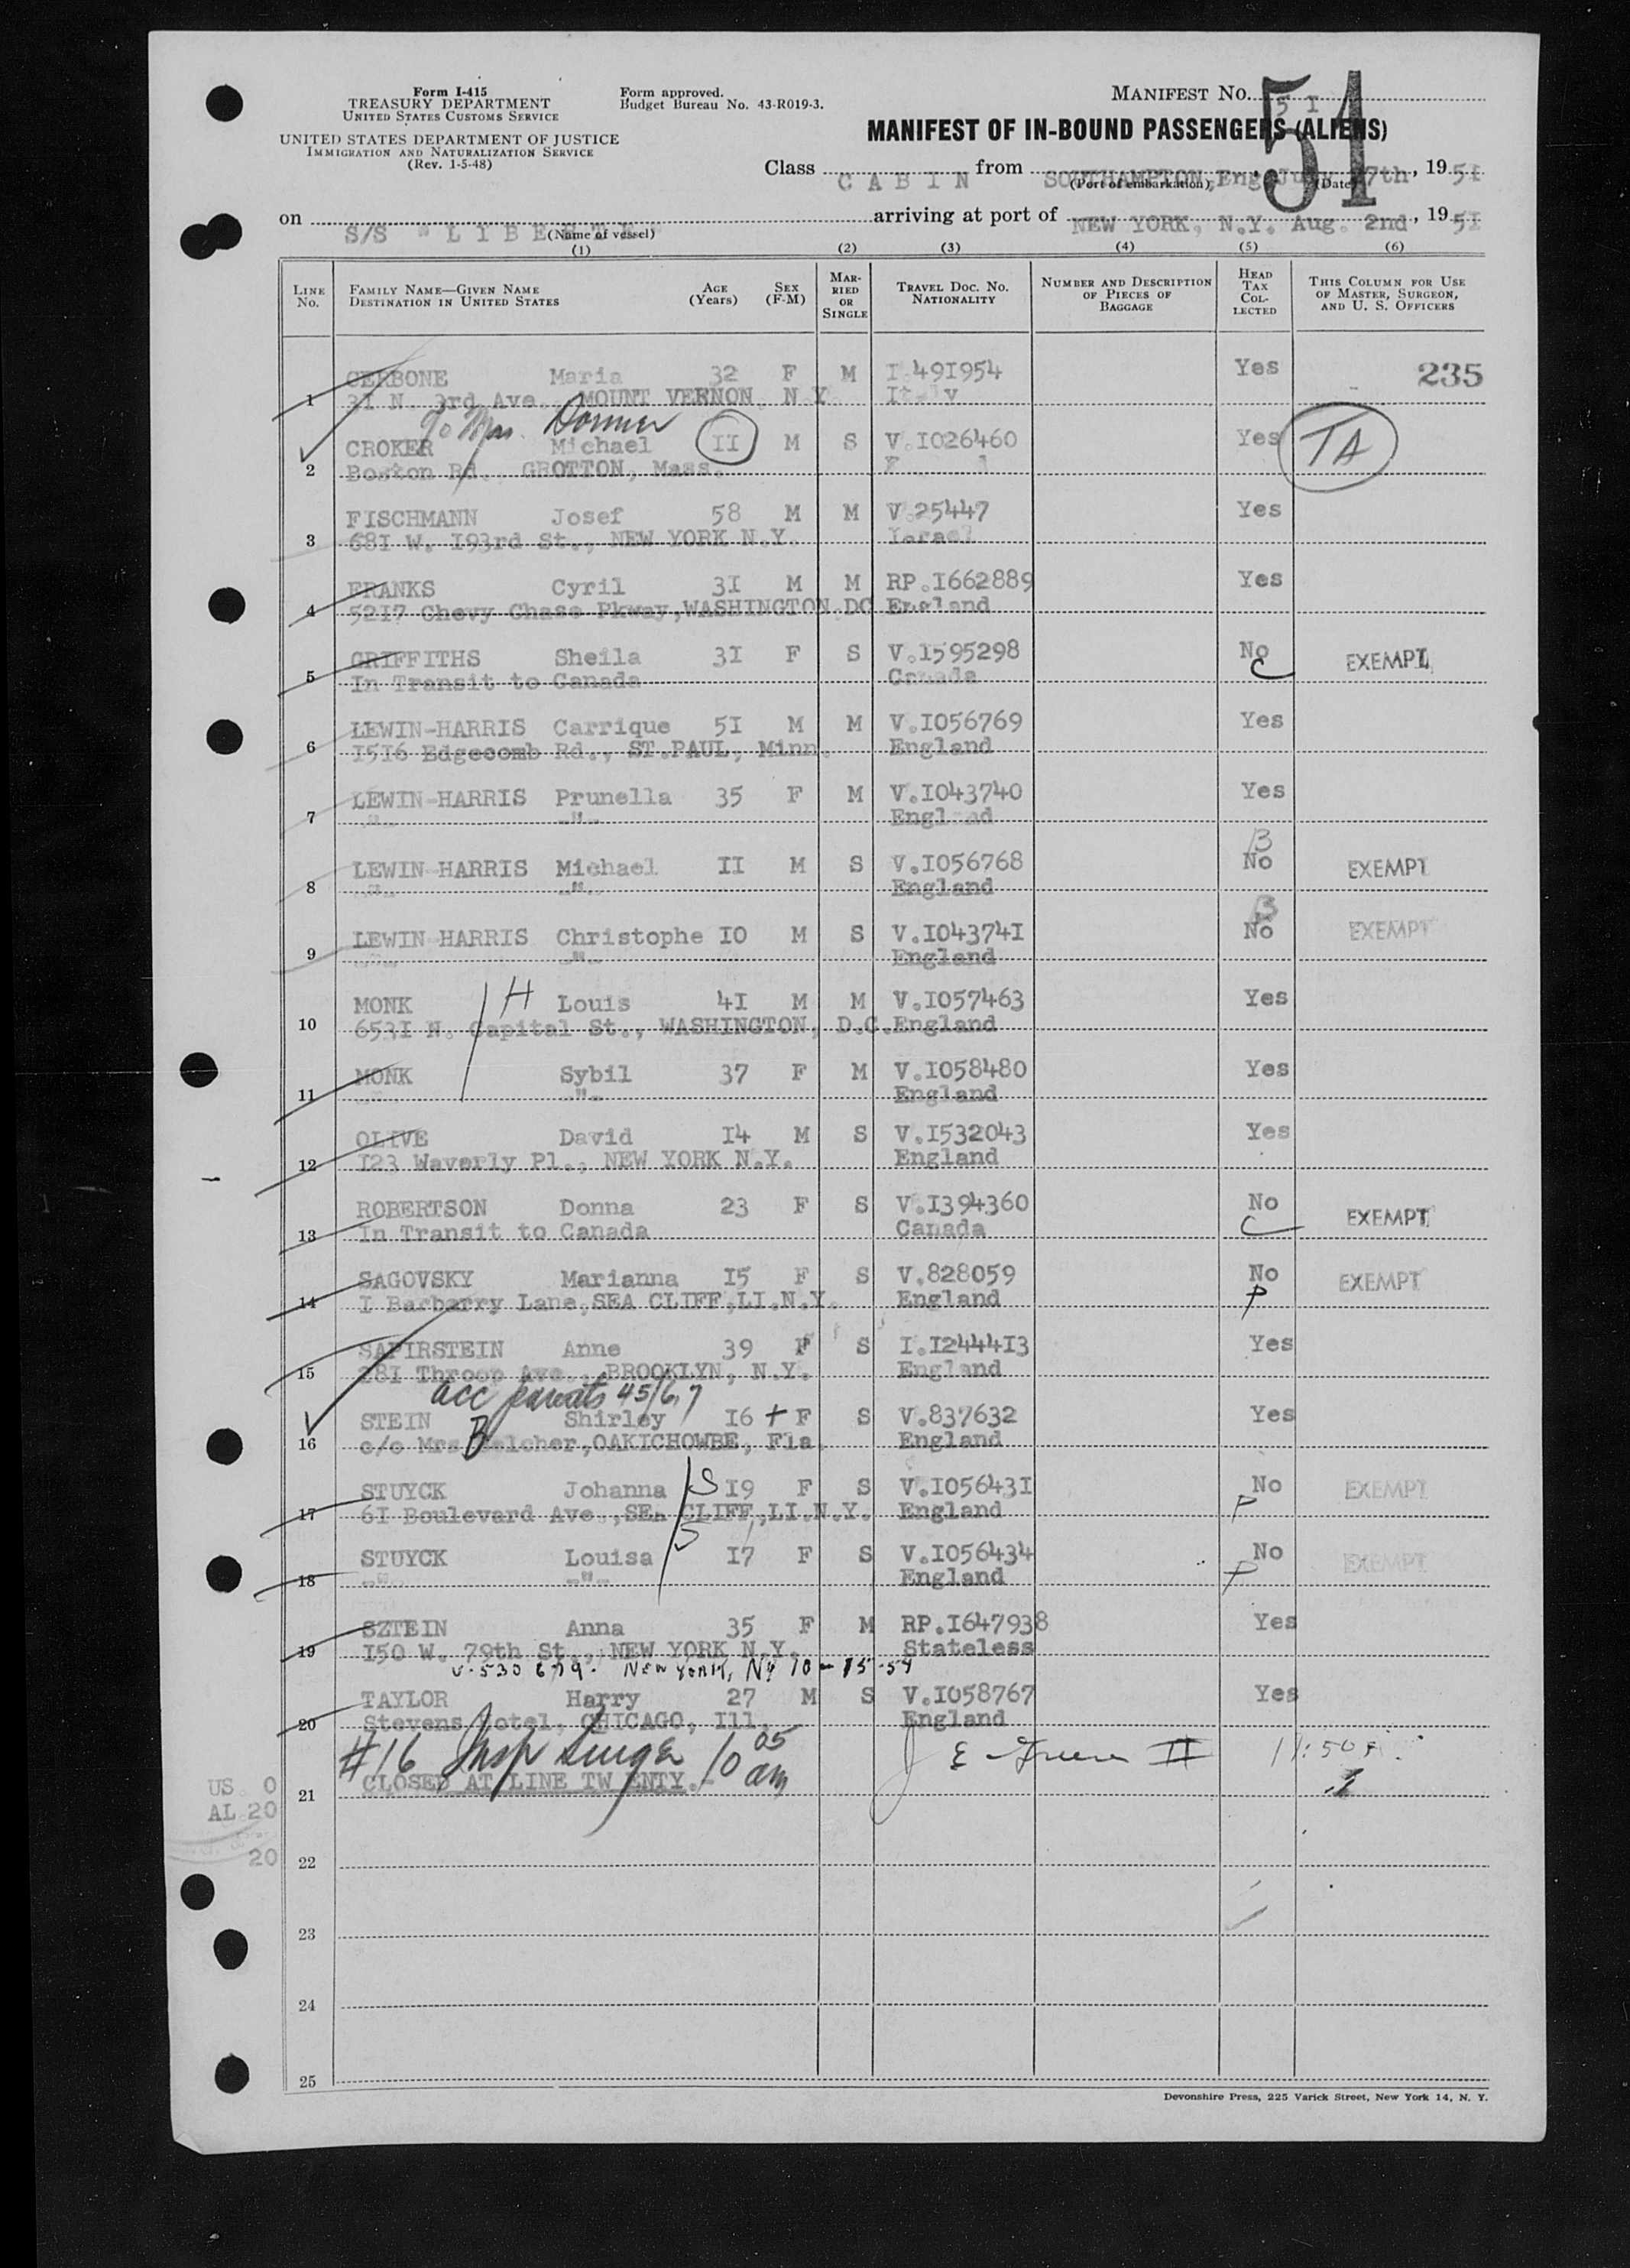 Form I-415
TREASURY DEPARTMENT
UNITED STATES CUSTOMS SERVICE
UNITED STATES DEPARTMENT OF JUSTICE
IMMIGRATION AND NATURALIZATION SERVICE
(Rev. 1-5-48)
Form approved.
Budget Bureau No. 43-R019-3.
MANIFEST NO. 51
54
MANIFEST OF IN-BOUND PASSENGERS (ALIENS)
Class CABIN from SOUTHAMPTON, Eng, July 27th, 1951
(Port of embarkation) (Date)
on S/S "LIBERTE" arriving at port of NEW YORK, N.Y. Aug. 2nd, 1951
(Name of vessel)
(1) (2) (3) (4) (5) (6)
LINE No. FAMILY NAME—GIVEN NAME DESTINATION IN UNITED STATES AGE (Years) SEX (F-M) MARRIED OR SINGLE TRAVEL DOC. NO. NATIONALITY NUMBER AND DESCRIPTION OF PIECES OF BAGGAGE HEAD TAX COLLECTED THIS COLUMN FOR USE OF MASTER, SURGEON, AND U. S. OFFICERS
CERBONE Maria 32 F M I.491954 Yes 235
1 31 N. 3rd Ave., MOUNT VERNON, N.Y. Italy
c/o Mrs. Donner
CROKER Michael II M S V.I026460 Yes TA
2 Boston Rd., GROTTON, Mass.
FISCHMANN Josef 58 M M V.25447 Yes
3 68I W. I93rd St., NEW YORK N.Y. Israel
FRANKS Cyril 3I M M RP.I662889 Yes
4 52I7 Chevy Chase Pkway, WASHINGTON DC England
GRIFFITHS Sheila 3I F S V.1595298 No C EXEMPT
5 In Transit to Canada Canada
LEWIN-HARRIS Carrique 5I M M V.I056769 Yes
6 I5I6 Edgecomb Rd., ST.PAUL, Minn. England
LEWIN-HARRIS Prunella 35 F M V.I043740 Yes
7 -"- -"- England
B
LEWIN-HARRIS Michael II M S V.I056768 No EXEMPT
8 -"- -"- England
B
LEWIN-HARRIS Christophe I0 M S V.I04374I No EXEMPT
9 -"- -"- England
MONK H Louis 4I M M V.I057463 Yes
10 653I N. Capital St., WASHINGTON, D.C. England
MONK Sybil 37 F M V.I058480 Yes
11 -"- -"- England
OLIVE David I4 M S V.I532043 Yes
12 I23 Waverly Pl., NEW YORK N.Y. England
ROBERTSON Donna 23 F S V.I394360 No C EXEMPT
13 In Transit to Canada Canada
SAGOVSKY Marianna I5 F S V.828059 No P EXEMPT
14 I Barberry Lane, SEA CLIFF, LI.N.Y. England
SAPIRSTEIN Anne 39 F S I.I2444I3 Yes
15 28I Throop Ave., BROOKLYN, N.Y. England
acc parents 45/6,7
STEIN Shirley I6 + F S V.837632 Yes
16 c/o Mrs Belcher, OAKICHOWBE, Fla. England
STUYCK Johanna S I9 F S V.I05643I No P EXEMPT
17 6I Boulevard Ave., SEA CLIFF, LI.N.Y. England
STUYCK Louisa S I7 F S V.I056434 No P EXEMPT
18 -"- -"- England
SZTEIN Anna 35 F M RP.I647938 Yes
19 I50 W. 79th St., NEW YORK N.Y. Stateless
V-530 679. NEW YORK, NY 10-15-54
TAYLOR Harry 27 M S V.I058767 Yes
20 Stevens Hotel, CHICAGO, Ill. England
#16 Insp 10 05 am J E Greene II 11:50
CLOSED AT LINE TWENTY.-
21
US 0
AL 20
20
22
23
24
25
Devonshire Press, 225 Varick Street, New York 14, N. Y.